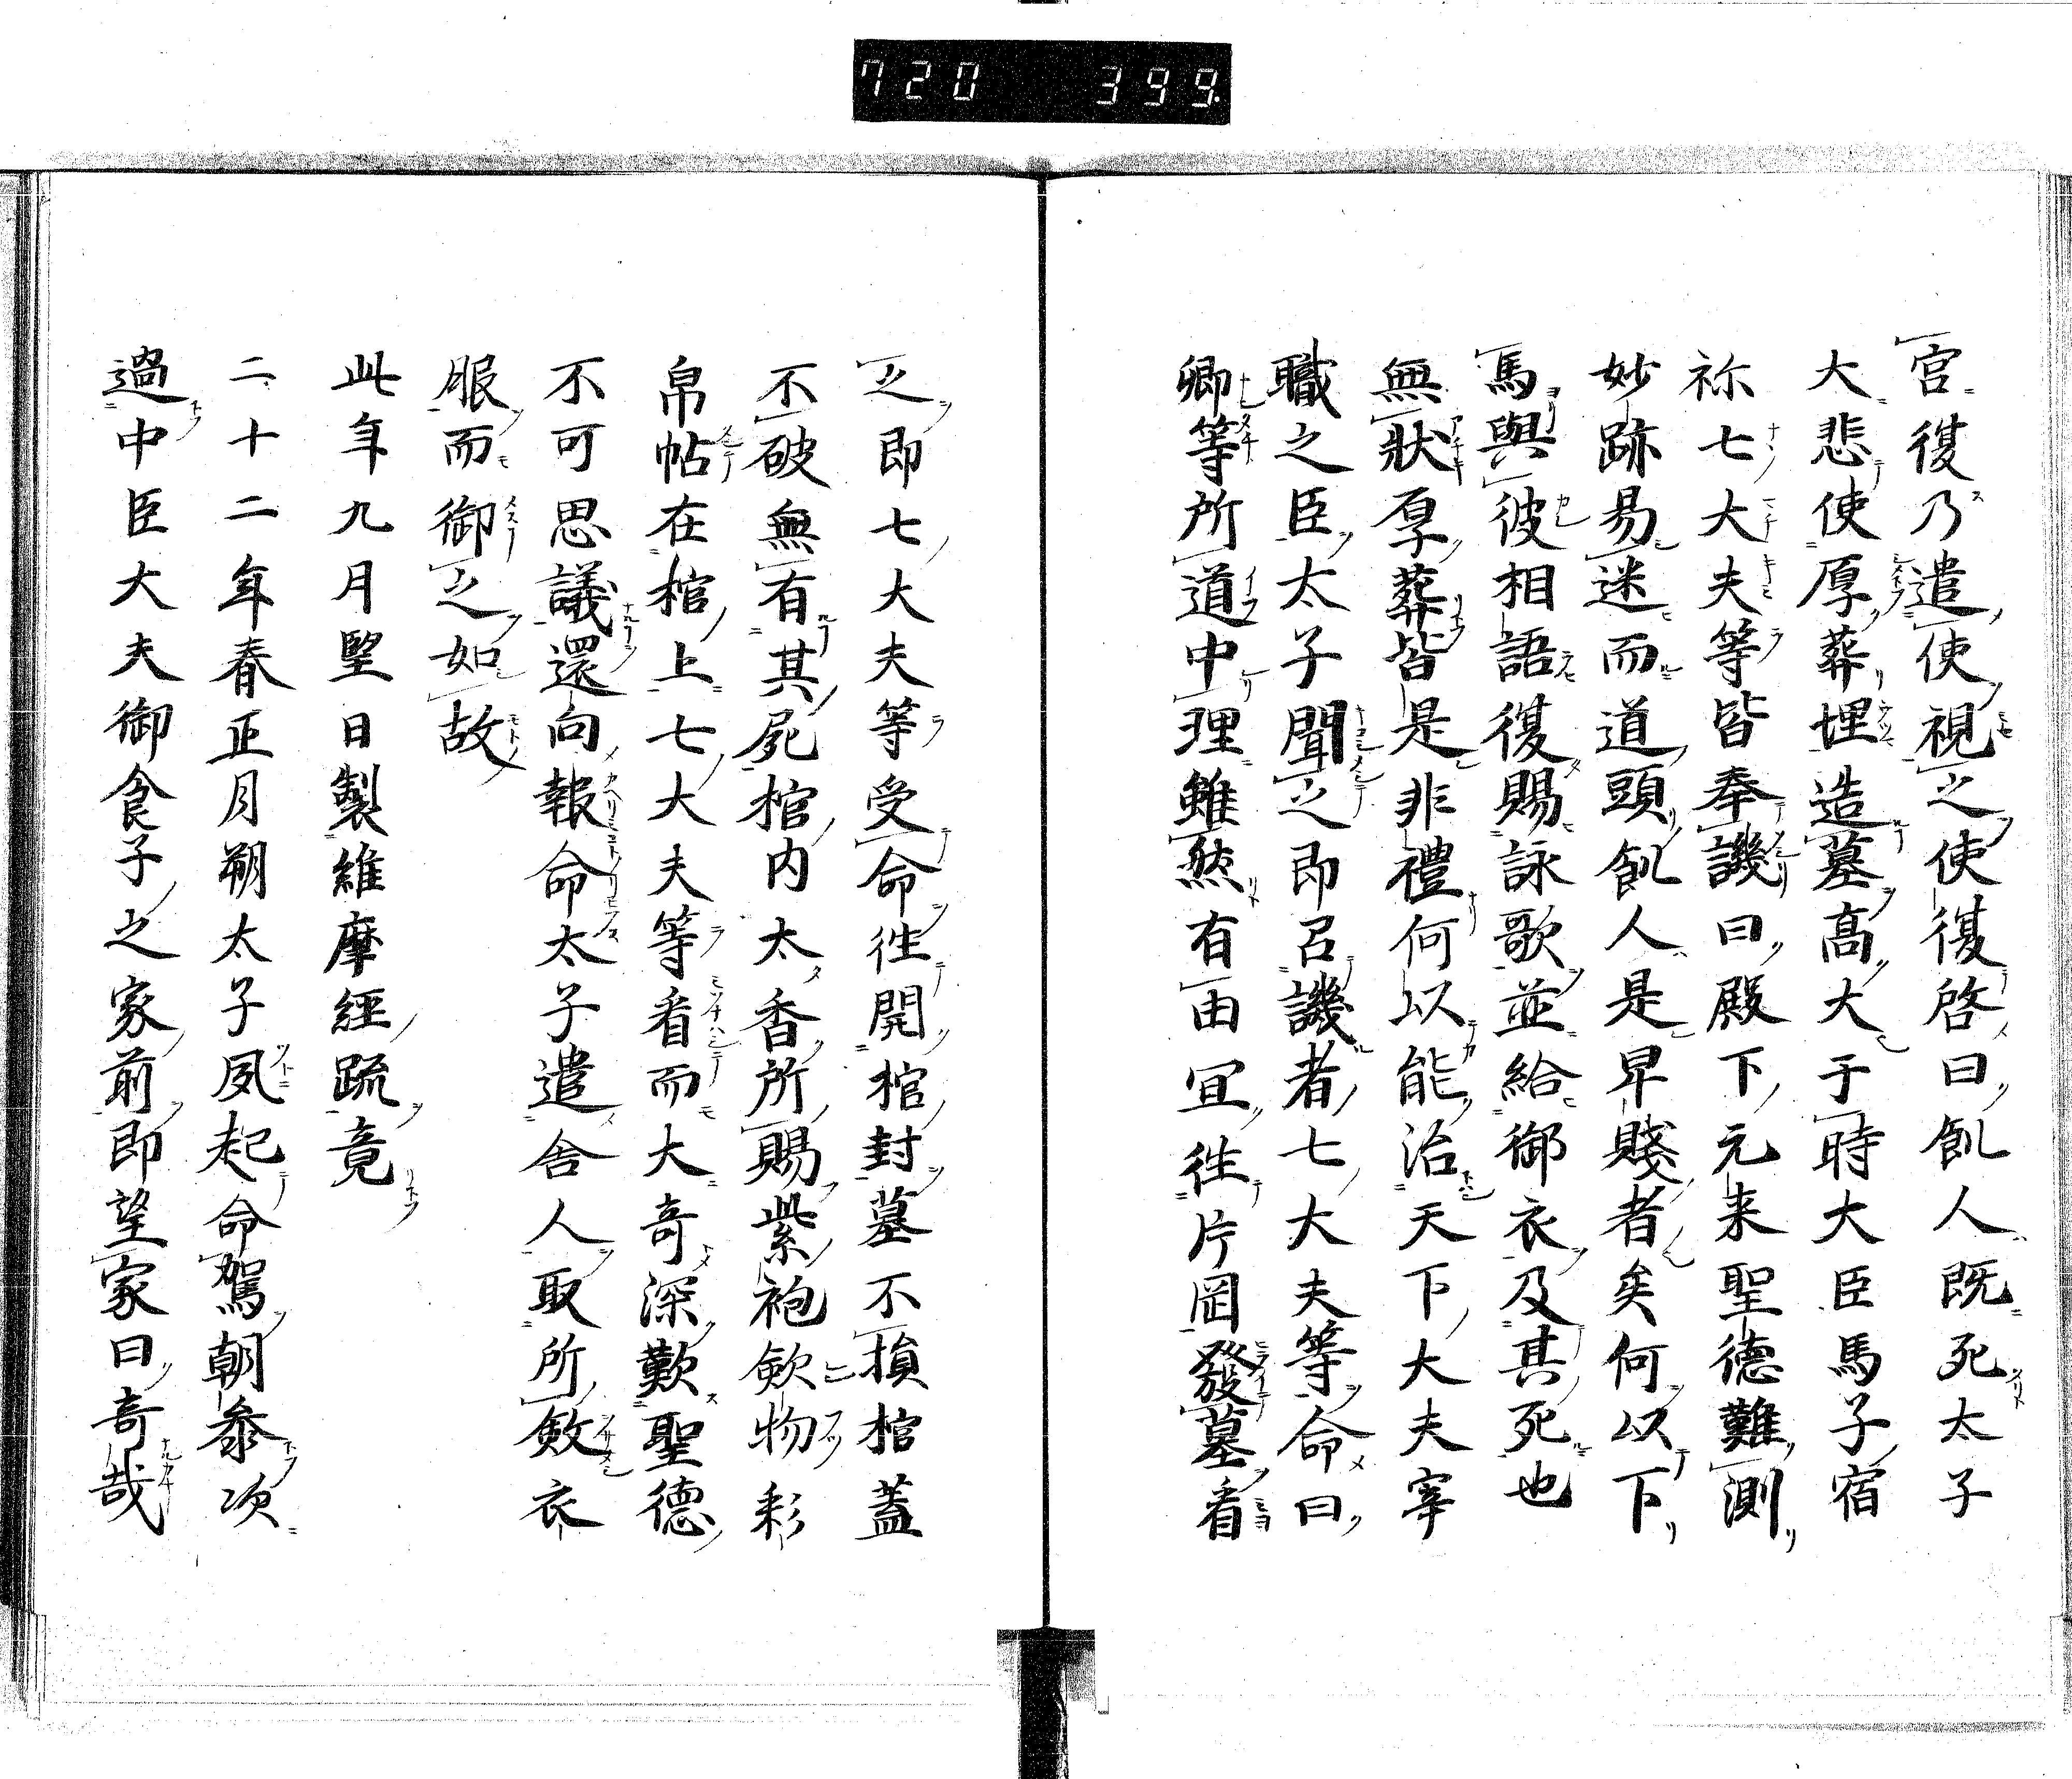 720 399
宮復乃遣使視之使復啓曰飢人既死太子
大悲使厚葬埋造墓高大于時大臣馬子宿
祢七大夫等皆奉譏曰殿下元来聖德難測
妙跡易迷而道頭飢人是卑賤者矣何以下
馬與彼相語復賜詠歌並給御衣及其死也
無狀厚葬皆是非禮何以能治天下大夫宰
職之臣太子聞之即召譏者七大夫等命曰
卿等所道中理雖然有由宜往片岡發墓看
之即七大夫等受命往開棺封墓不損棺蓋
不破無有其屍棺内太香所賜紫袍斂物彩
帛帖在棺上七大夫等看而大奇深歎聖德
不可思議還向報命太子遣舎人取所斂衣
服而御之如故
此年九月望日製維摩經疏竟
二十二年春正月朔太子夙起命駕朝參次
過中臣大夫御食子之家前即望家曰奇哉